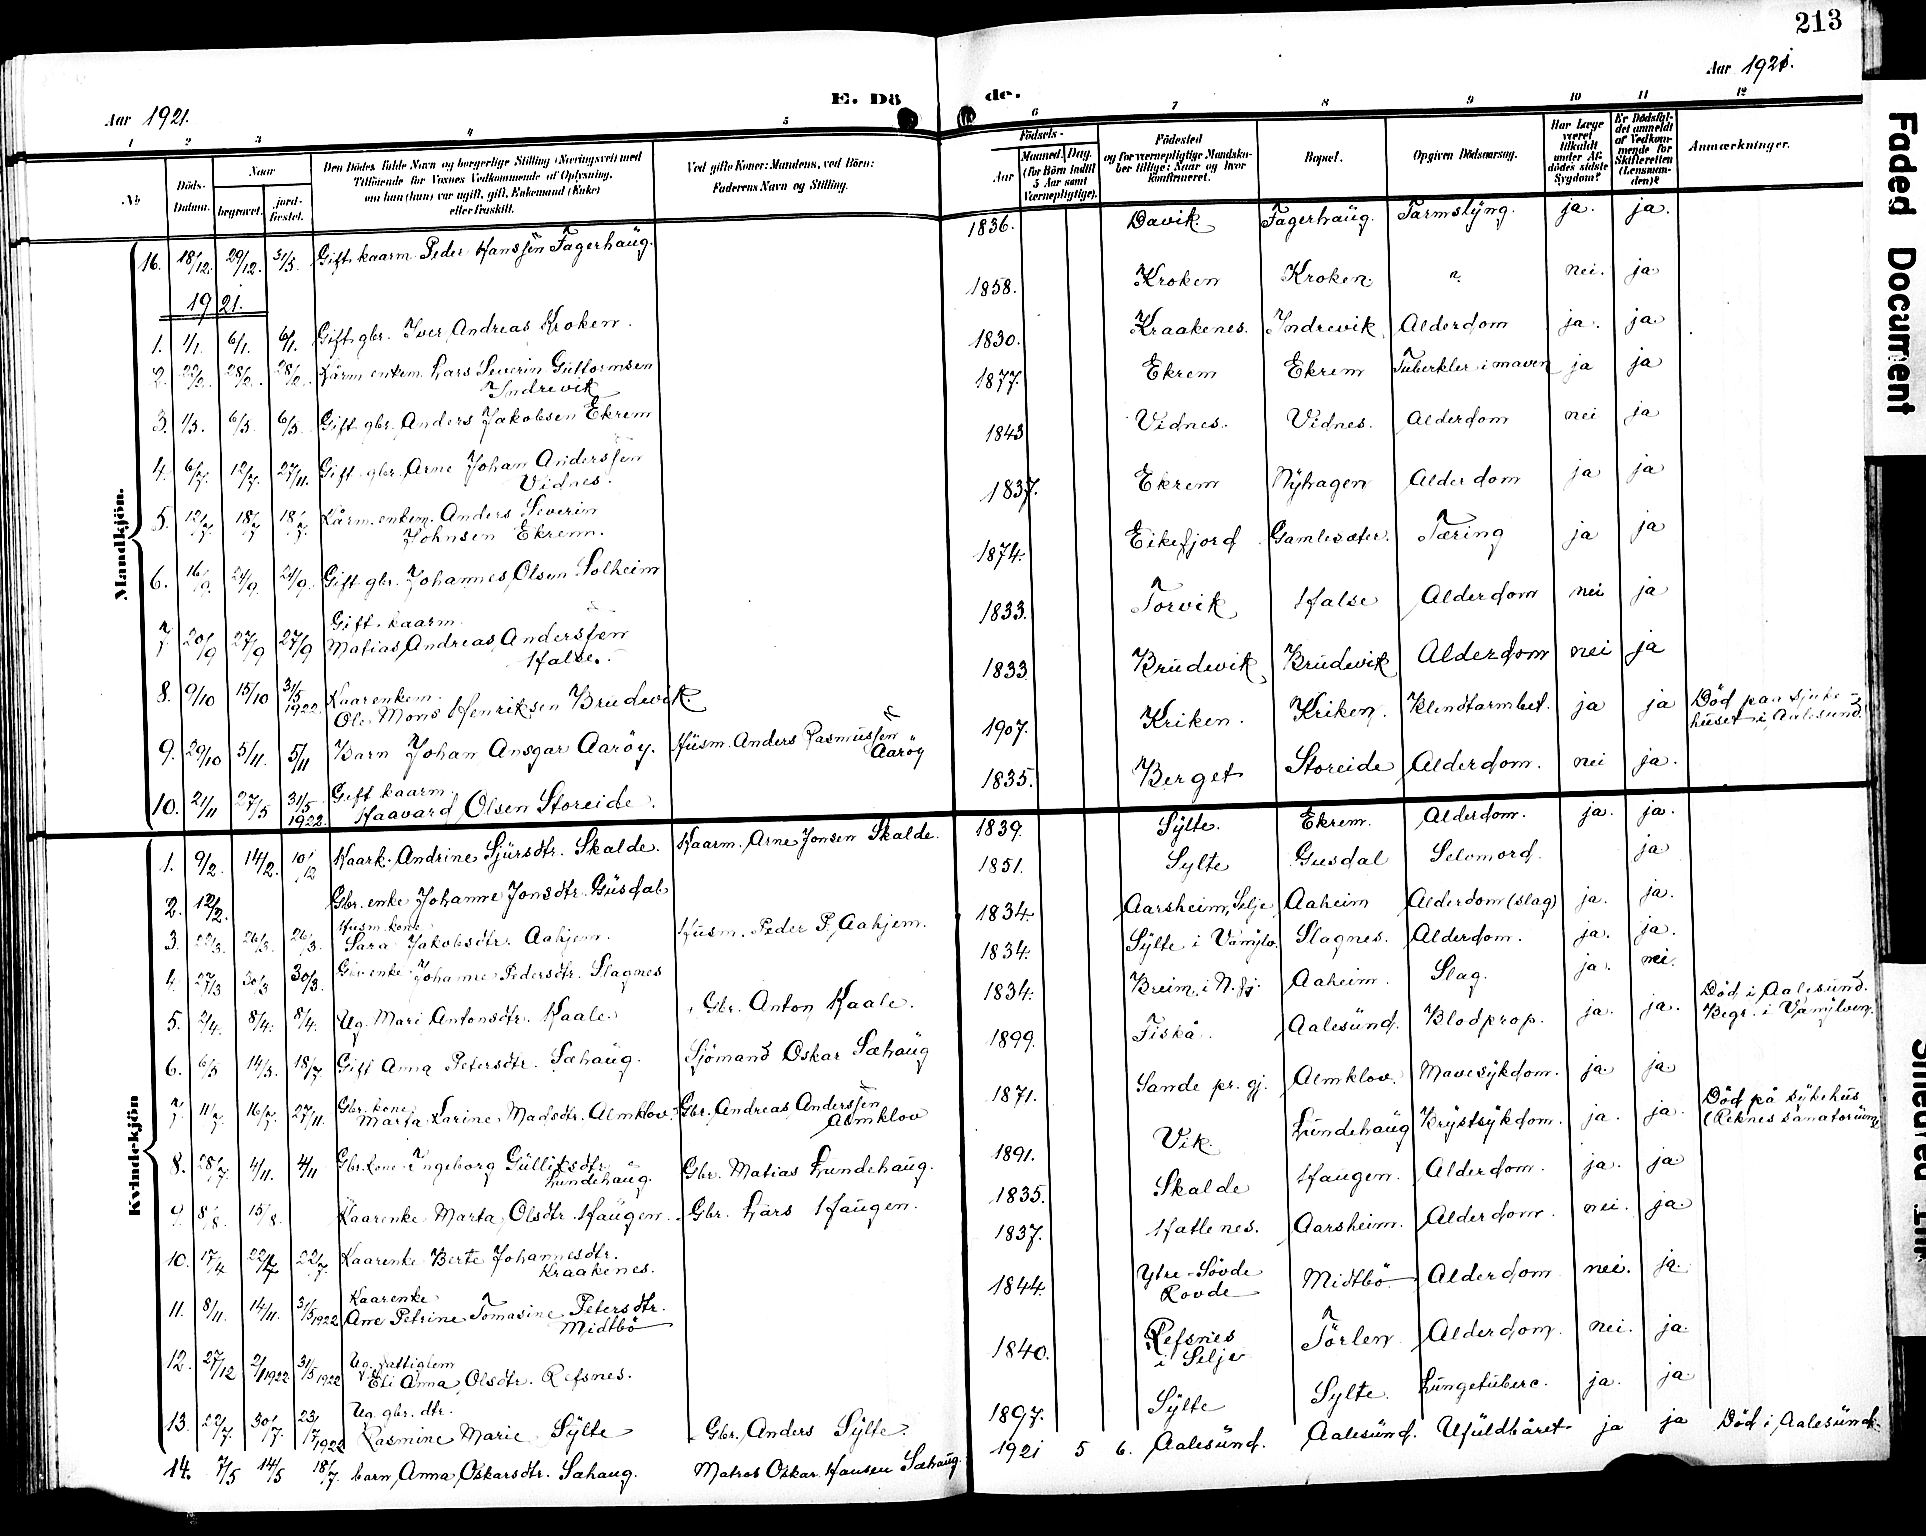 213
Aar 1921.
E. Døde.
Aar 1921.
1 2 3 4 5 6 7 8 9 10 11 12
No
Døds-Datum.
Naar
begravet.
jord-fæstet.
Den Dødes fulde Navn og borgerlige Stilling (Næringsvei) med
Tilføiende for Voxnes Vedkommende af Oplysning,
om han (hun) var ugift, gift, Enkemand (Enke)
eller fraskilt.
Ved gifte Koner: Mandens, ved Børn:
Faderens Navn og Stilling.
Fødsels-
Aar
Maaned. Dag.
(for Børn indtil
5 Aar samt
Værnepligtige).
Fødested
og for værnepligtige Mandska-
ber tillige: Naar og hvor
konfirmeret.
Bopæl.
Opgiven Dødsaarsag.
Har Læge
været
tilkaldt
under Af-
dødes sidste
Sygdom?
Er Dødsfal-
det anmeldt
af Vedkom-
mende for
Skifteretten
(Lensman-
den)?
Anmærkninger.
Mandkjön.
16. 18/12. 29/12. 31/5. Gift kaarm. Peder Hanssen Fagerhaug. 1836. Davik. Fagerhaug. Tarmslyng. ja. ja.
1921.
1. 1/1. 6/1. 6/1. Gift gbr. Iver Andreas Kroken. 1858. Kroken Kroken " nei. ja
2. 22/2. 28/2. 28/2. Kårm. enkem. Lars Severin Guttormsen
Indrevik 1830. Kraakenes. Indrevik Alderdom ja. ja
3. 1/3. 6/3. 6/3. Gift gbr. Anders Jakobsen Ekrem 1877. Ekrem Ekrem Tuberkler i maven ja ja
4. 6/7. 12/7. 27/11. Gift gbr. Arne Johan Anderssen
Vidnes. 1843 Vidnes. Vidnes. Alderdom nei ja
5. 12/7. 18/7 18/7. Kårm. enkem. Anders Severin
Johnsen Ekrem. 1837. Ekrem Nyhagen Alderdom ja ja
6. 16/9. 24/9. 24/9. Gift gbr. Johannes Olsen Solheim 1874. Eikefjord Gamlesæter. Tæring ja ja
7 20/9 27/9 27/9 Gift kaarm.
Matias Andreas Anderssen
Halse. 1833. Torvik Halse Alderdom nei ja
8. 9/10 15/10 31/5 1922. Kaarenkem.
Ole Mons Henriksen Brudevik. 1833. Brudevik Brudevik Alderdom nei ja
9. 29/10 5/11. 5/11 Barn Johan Ansgar Aaröy. Husm. Anders Rasmussen
Aaröy 1907. Kriken. Kriken. Blindtarmbet. ja ja Död paa sjuke-
huset i Aalesund.
10. 21/11 27/5 31/5 1922. Gift kaarm.
Haavard Olsen Storeide. 1835. Berget Storeide Alderdom. nei ja.
Kvindekjön
1. 9/2. 14/2. 10/12 Kaark. Andrine Sjursdtr. Skalde. Kaarm. Arne Jonsen Skalde. 1839. Sylte. Ekrem. Alderdom. ja. ja.
2. 12/2. Gbr. enke Johanne Jonsdtr. Gusdal 1851. Sylte Gusdal Selvmord. ja
3. 22/3. 26/3. 26/3. Husm. kone
Sara Jakobsdtr. Aahjem. Husm. Peder P. Aahjem. 1834. Aarsheim, Selje Aaheim Alderdom (slag) ja. ja.
4. 27/3 30/3 30/3. Gbr. enke Johanne Pedersdtr. Slagnes 1834. Sylte i Vannylv. Slagnes. Alderdom. ja. ja.
5. 2/4. 8/4. 8/4. Ug. Mari Antonsdtr. Kaale. Gbr. Anton Kaale. 1834. Breim i N.fj. Aaheim. Slag. ja. nei.
6. 6/5 14/5. 18/7 Gift Anna Petersdtr. Sæhaug. Sjömand Oskar Sæhaug 1899. Fiskå. Aalesund. Blodprop. ja. ja. Död i Aalesund.
Begr. i Vannylven.
7 11/7. 16/7. 27/11. Gbr. kone
Marta Karine Madsdtr. Almklov. Gbr. Andreas Anderssen
Almklov 1871. Sande pr. gj. Almklov. Mavesykdom. ja. ja
8. 28/7 4/11. 4/11 Gbr. kone Ingeborg Gullitsdtr.
Lundehaug. Gbr. Matias Lundehaug. 1891. Vik. Lundehaug Brystsykdom. ja. ja. Död på sykehus
(Reknes sanatorium)
9. 8/8. 15/8. Kaarenke Marta Olsdtr. Haugen. Gbr. Lars Haugen. 1835. Skalde Haugen. Alderdom. ja. ja
10. 17/4 22/4 22/7. Kaarenke Berte Johannesdtr.
Kraakenes. 1837. Hatlenes. Aarsheim. Alderdom. nei. ja
11. 8/11. 14/11. 31/5 1922 Kaarenke
Ane Petrine Tomasine Petersdtr.
Midtbö 1844. Ytre-Sövde
Rovde Midtbö Alderdom nei. ja
12. 27/12 2/1 1922 31/5 1922 Ug. fattiglem
Eli Anna Olsdtr. Refsnes. 1840. Refsnes
i Selje Törlen Alderdom. nei. ja.
13. 22/7. 30/7. 23/7 1922 Ug. gbr. dtr.
Rasmine Marie Sylte Gbr. Anders Sylte. 1897. Sylte Sylte. Lungetuberc. ja. ja
14. 7/5 14/5 18/7. barn Anna Oskarsdtr. Sæhaug. Matros Oskar Hansen Sæhaug. 1921 5 6. Aalesund. Aalesund. Ufuldbåret ja ja Död i Aalesund.
Faded Document